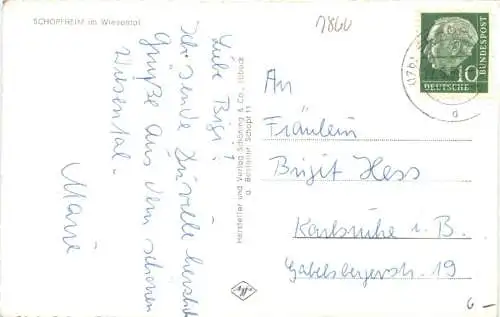 SCHOPFHEIM im Wiesental
1800
Liebe Birgit!
Ich sende Dir viele herzliche
Grüße aus dem schönen
Wiesental.
Marie
Hersteller und Verlag Schöning & Co., Lübeck
DEUTSCHE BUNDESPOST
10
(17b)
a
An
Fräulein
Birgit Hess
Karlsruhe i. B.
Gabelsbergerstr. 19
6 –